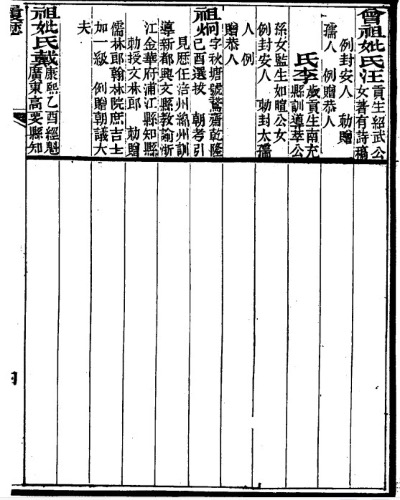 曾祖妣氏汪 貢生紹武公
女著有詩稿
例封安人 勅贈
孺人 例贈恭人
氏李 歲貢生南充
縣訓導莘公
孫女監生如暄公女
例封安人 勅封太孺
人 例
贈恭人
祖炯 字秋塘號 齋乾隆
己酉選拔 朝考引
見歷任涪州綿州訓
導新都興文縣教諭浙
江金華府浦江縣知縣
勅授文林郎 勅贈
儒林郎翰林院庶吉士
加一級 例贈朝議大
夫
祖妣氏戴 康熙乙酉經魁
廣東高要縣知